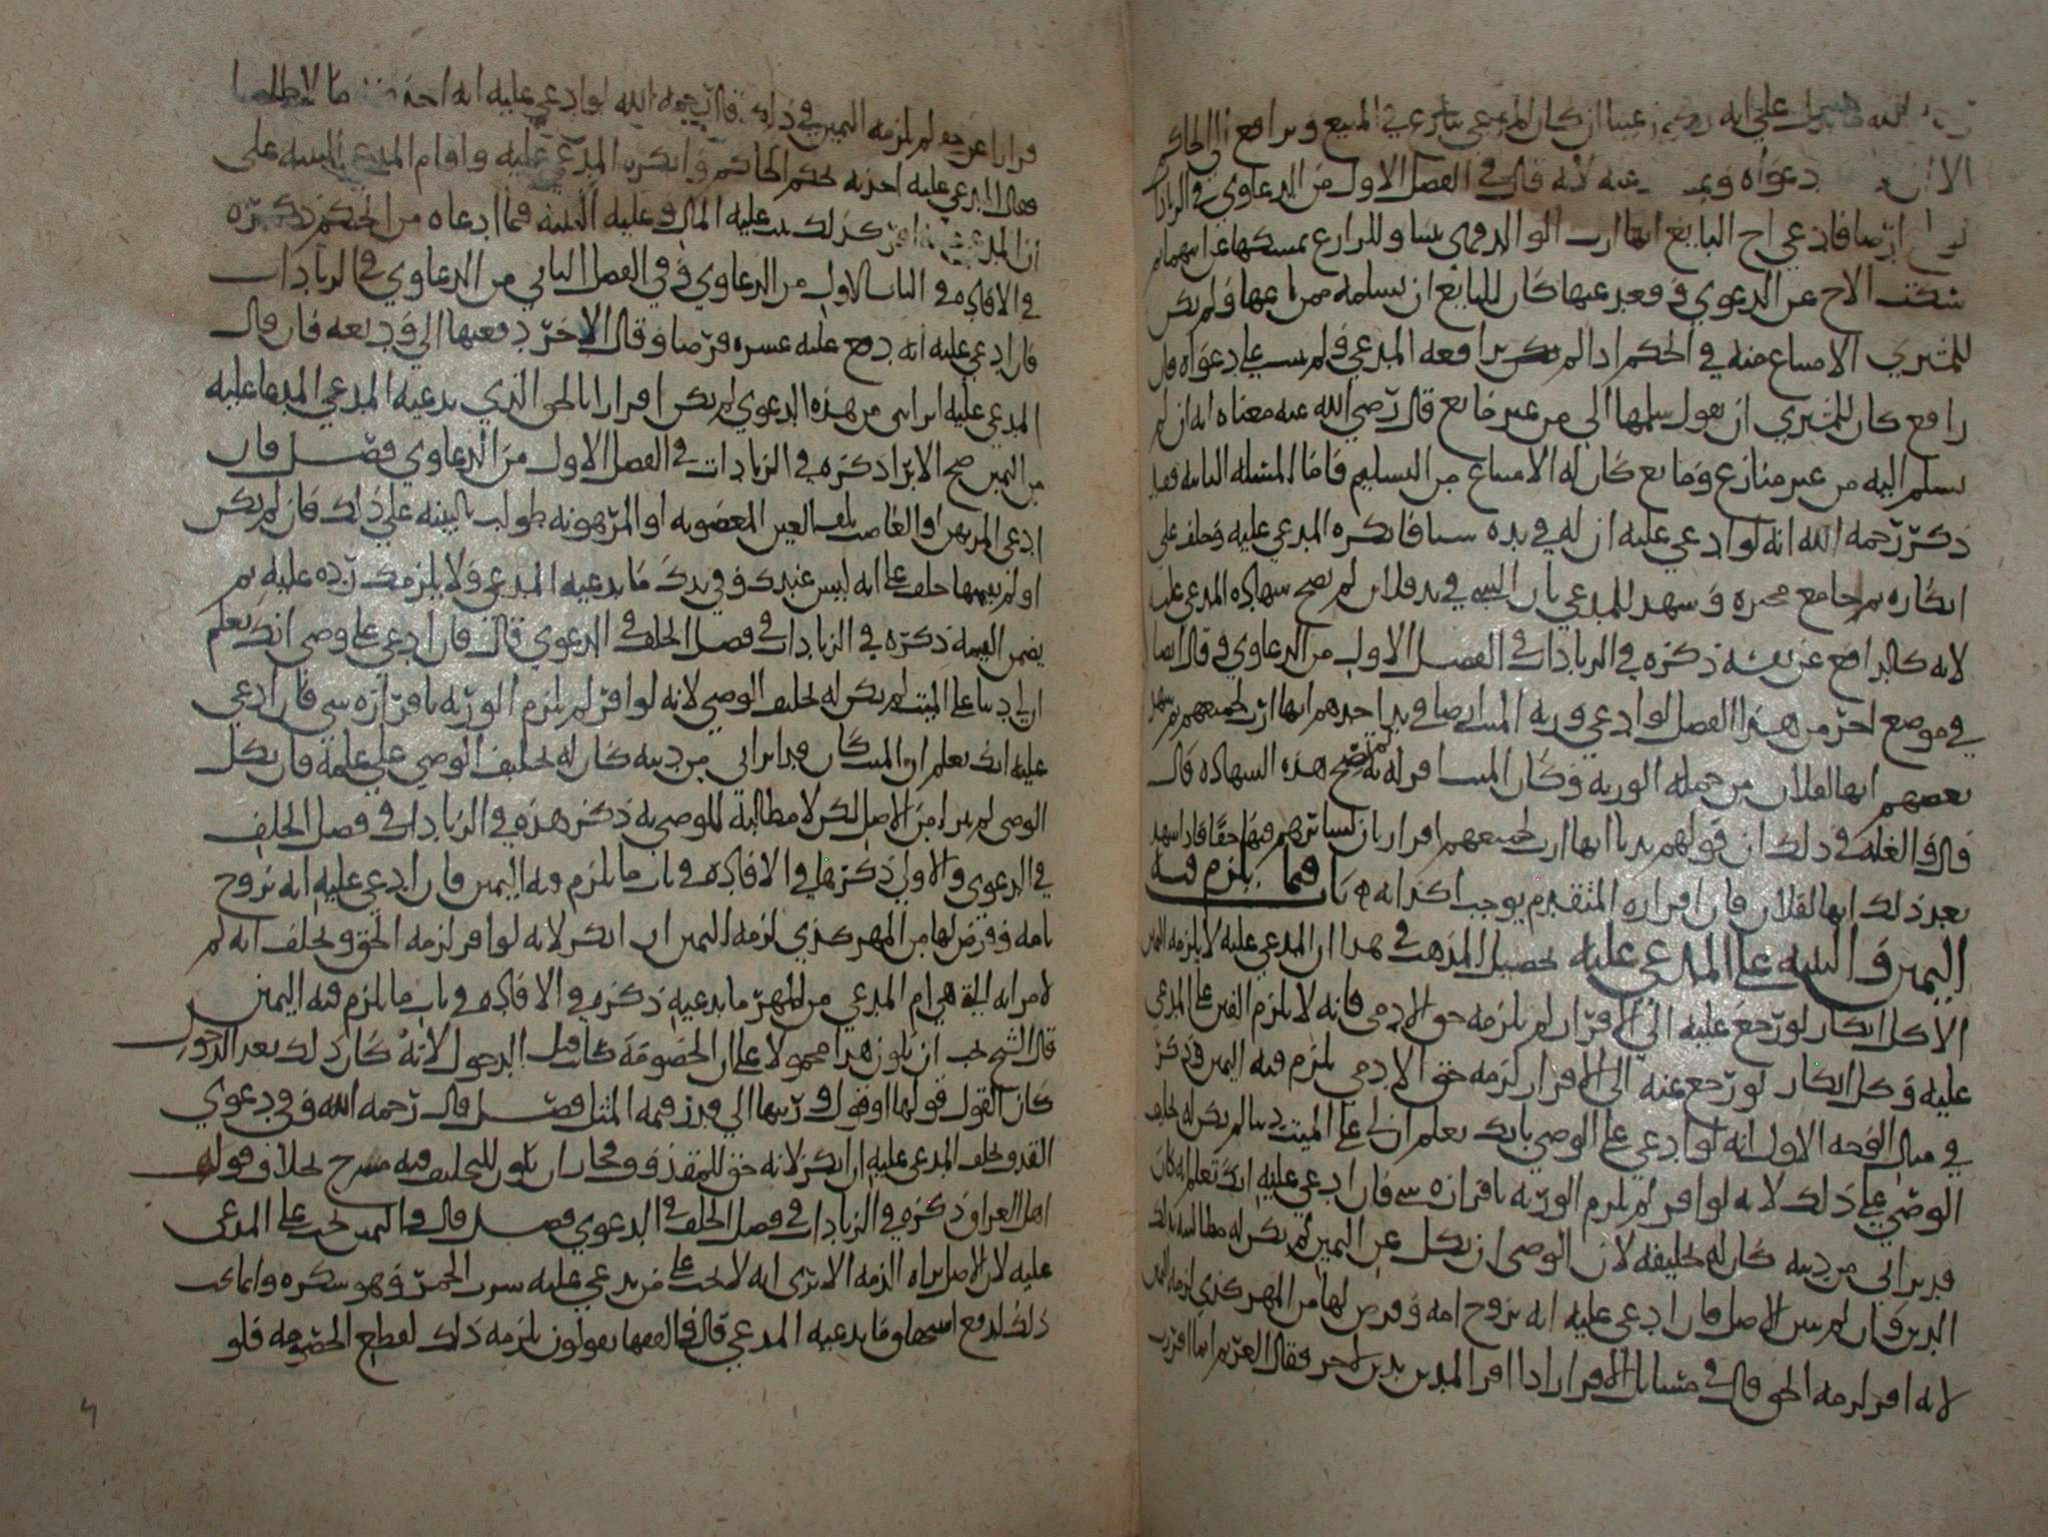 على انه عينا ان كان المدعي ينازع في المبيع ويرافع الى الحاكم
دعواه لانه قال في الفصل الاول من الدعاوي في الزيادات
ارضا فادعى اخ البايع انها ارث الوالد وهي بينا وللزارع يمسكها عن اسهمنا ثم
سكت الاخ عن الدعوي وقعد عنها كان للبايع ان يسلمه ثمن ما باعها ولم يكن
للمشتري الامتناع منه في الحكم اذا لم يكن يرافعه المدعي ولم يثبت على دعواه فان
رافع كان للمشتري ان يقول سلمها الي من غير مانع قال رضي الله عنه معناه انه ان لم
يسلم اليه من غير منازع ومانع كان له الامتناع من التسليم فاما المسئلة الثانية فقد
ذكر رحمه الله انه لو ادعي عليه ان له في يده شيئا فانكره المدعي عليه وحلف على
انكاره ثم جا مع مخبره وشهد للمدعي بان الشي في يد فلان لم تصح شهادة المدعي عليه
لانه كالدافع عن نفسه ذكره في الزيادات في الفصل الاول من الدعاوي وقال ايضا
في موضع اخر من هذا الفصل لو ادعي ورثة الميت ارضا في يد احدهم انها ارث لجميعهم ثم شهد
بعضهم انها لفلان من جملة الورثة وكان الميت اقر له به لم تصح هذه الشهادة قال
قال والعلة في ذلك ان قولهم بديا انها ارث لجميعهم اقرار بان لسائرهم فيها حقا فاذا شهد
بعد ذلك انها لفلان فان اقراره المتقدم يوجب اكذابه باب فيما يلزم فيه
اليمين والبينة على المدعى عليه تحصيل المذهب في هذا ان المدعي عليه لا يلزمه اليمين
الا كل انكار لو رجع عليه الى الاقرار لم يلزمه حق الادمي فانه لا يلزم اليمين على المدعي
عليه وكل انكار لو رجع عنه الى الاقرار لزمه حق الادمي يلزم فيه اليمين وذكر
في مثال الوجه الاول انه لو ادعي على الوصي بانك تعلم ان لي على الميت دينا لم يكن له تحليف
الوصي على ذلك لانه لو اقر لم يلزم الورثة باقراره شي فان ادعي عليه انك تعلم انه كان
قد برا لي من دينه كان له تحليفه لان الوصي ان نكل عن اليمين لم يكن له مطالبته بذلك
الدين وان لم يبن الاصل فان ادعى عليه انه تزوج امه وفرض لها من المهر كذي لزمه اليمين
لانه اقر لزمه الحق قال في مسائل الاقرار اذا اقر المدين بدين لاخر فقال الغريم انما اقررت
فرارا عن حقي لم يلزمه اليمين في ذلك قال رحمه الله لو ادعي عليه انه اخذ مالا ظلما
فقال المدعي عليه اخذته بحكم الحاكم وانكره المدعي عليه واقام المدعي البينة على
ان المدعي عليه اقر كذلك ثبت عليه المال وعليه البينة فيما ادعاه من الحكم ذكره
في الافادة في الباب الاول من الدعاوي وفي الفصل الثاني من الدعاوي في الزيادات
فان ادعي عليه انه دفع عليه عشرة قرضا وقال الاخر دفعها الي وديعة فان قال
المدعي عليه ابراني من هذه الدعوي لم يكن اقرارا بالحق الذي يدعيه المدعي
من اليمين صح الابرا ذكره في الزيادات في الفصل الاول من الدعاوي فصل فان
ادعى المرتهن او الغاصب تلف العين المغصوبة او المرهونة طولب بالبينة على ذلك فان لم يكن
او لم يقمها حلف على انه ليس عندك وفي يدك ما يدعيه المدعي ولا يلزمك رده عليه ثم
يضمن القيمة ذكره في الزيادات في فصل الحلف في الدعوي قال فان ادعي على وصي انك تعلم
ان لي دينا على الميت لم يكن له تحليف الوصي لانه لو اقر لم يلزم الورثة باقراره شي فان ادعي
عليه انك تعلم ان الميت كان قد ابراني من دينه كان له تحليف الوصي على علمه فان نكل
الوصي لم يبرا من الاصل لكن لا مطالبة للوصي به ذكر هذه في الزيادات في فصل الحلف
في الدعوي والاولى ذكرها في الافادة في باب ما يلزم فيه اليمين فان ادعي عليه انه تزوج
بامه وفرض لها من المهر كذي لزمه اليمين ان انكر لانه لو اقر لزمه الحق ويحلف انه لم
لامرانه ليلة هي ام المدعي من المهر ما يدعيه ذكره في الافادة في باب ما يلزم فيه اليمين
قال الشيخ يجب ان يكون هذا محمولا على ان الخصومة كانت قبل الدخول لانه كان ذلك بعد الدخول
كان القول قولها او قول ورثتها الى قدر قيمة المثل فصل قال رحمه الله وفي دعوي
القذف يحلف المدعي عليه ان انكر لانه حق للمقذوف وفجاز ان يكون للتحليف فيه مسرح بخلاف قول
اهل العراق ذكره في الزيادات في فصل الحلف في الدعوي فصل قال واليمين تجب على المدعى
عليه لان الاصل براة الذمة الا ترى انه لا تجب على من يدعي عليه شرب الخمر وهو منكره وانما يجب
ذلك لدفع استحقاق ما يدعيه المدعي قال والفقها يقولون يلزمه ذلك لقطع الخصومة فلو